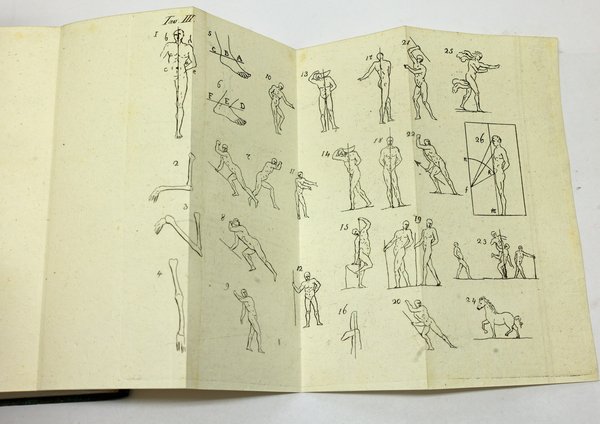 Tav. III.
1 b
c e
2
3
4
5
C B A
6
F E D
7
8
9
10
11
12
13
14
15
16
17
18
19
20
21
22
25
26
23
24